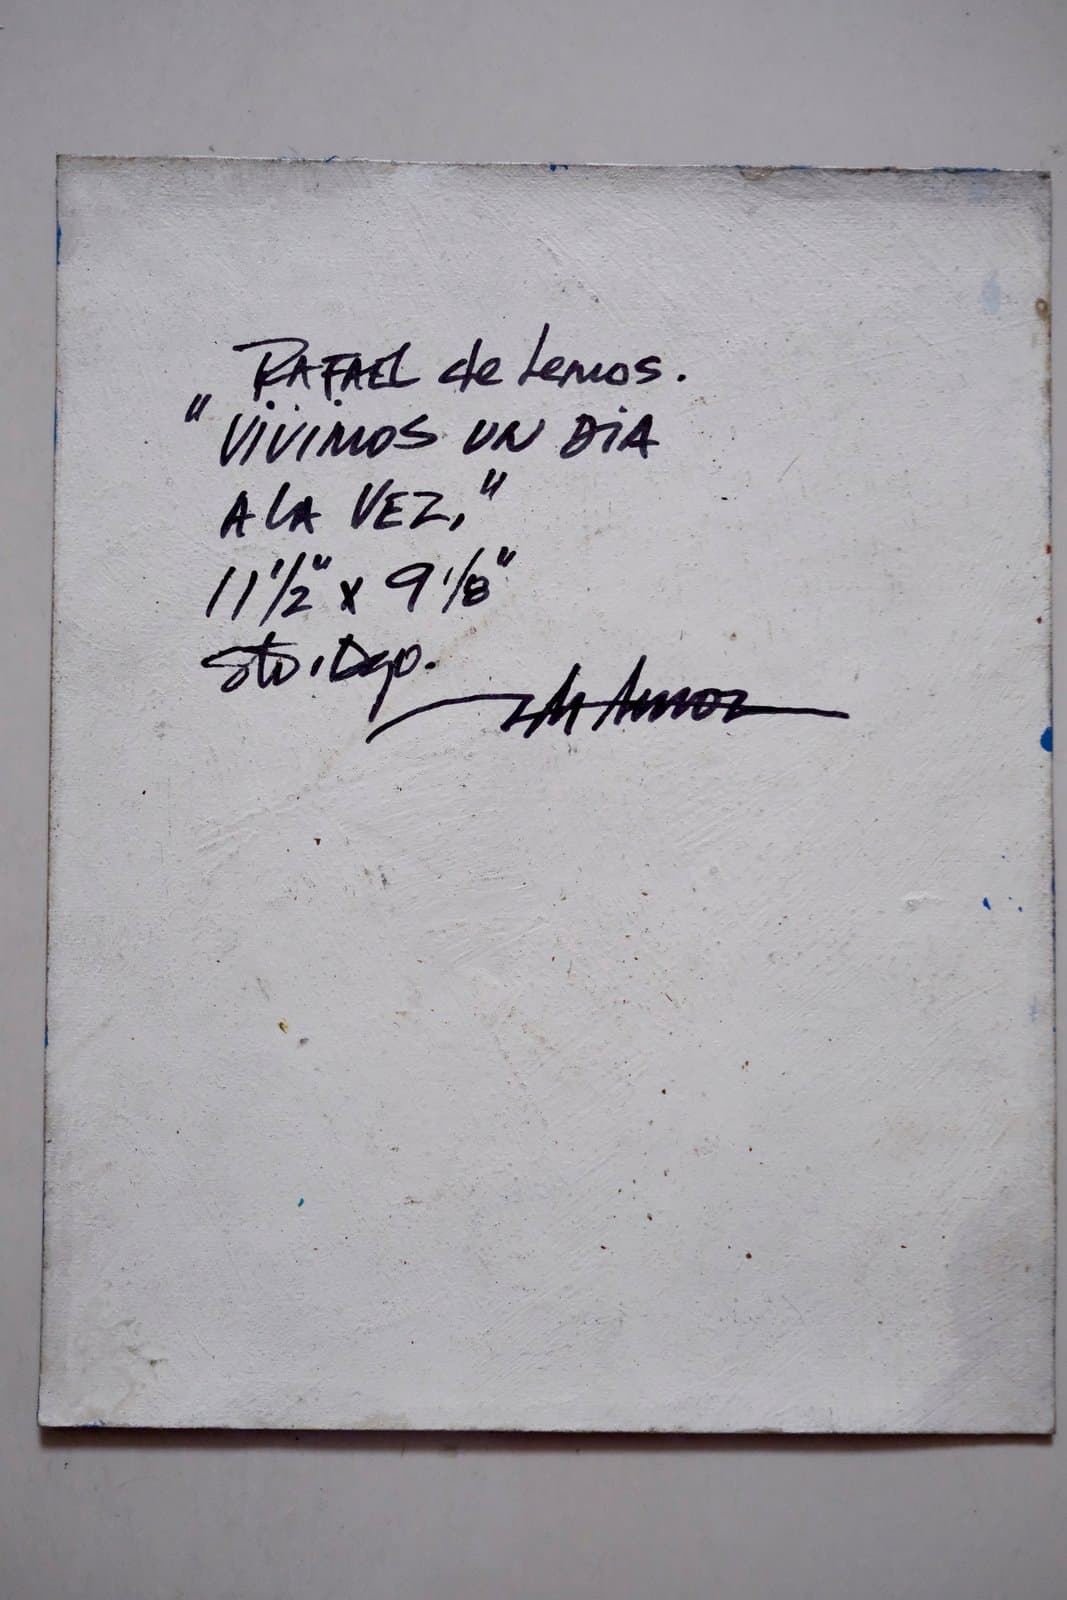 RAFAEL de Lemos.
"VIVIMOS UN DIA
A LA VEZ."
11 1/2" x 9 1/8"
Sto. Dgo.